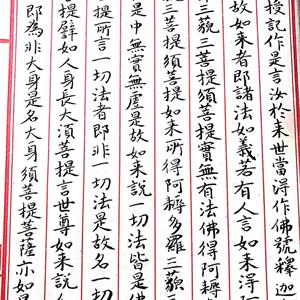 授記作是言汝於来世當淂作佛號釋迦
故如来者即諸法如義若有人言如来淂阿
三藐三菩提須菩提實無有法佛得阿耨
三菩提須菩提如来所得阿耨多羅三藐
是中無實無虛是故如来說一切法皆是佛
提所言一切法者即非一切法是故名一切
菩提譬如人身長大湏菩提言世尊如来說人
即為非大身是名大身須菩提菩薩亦如是